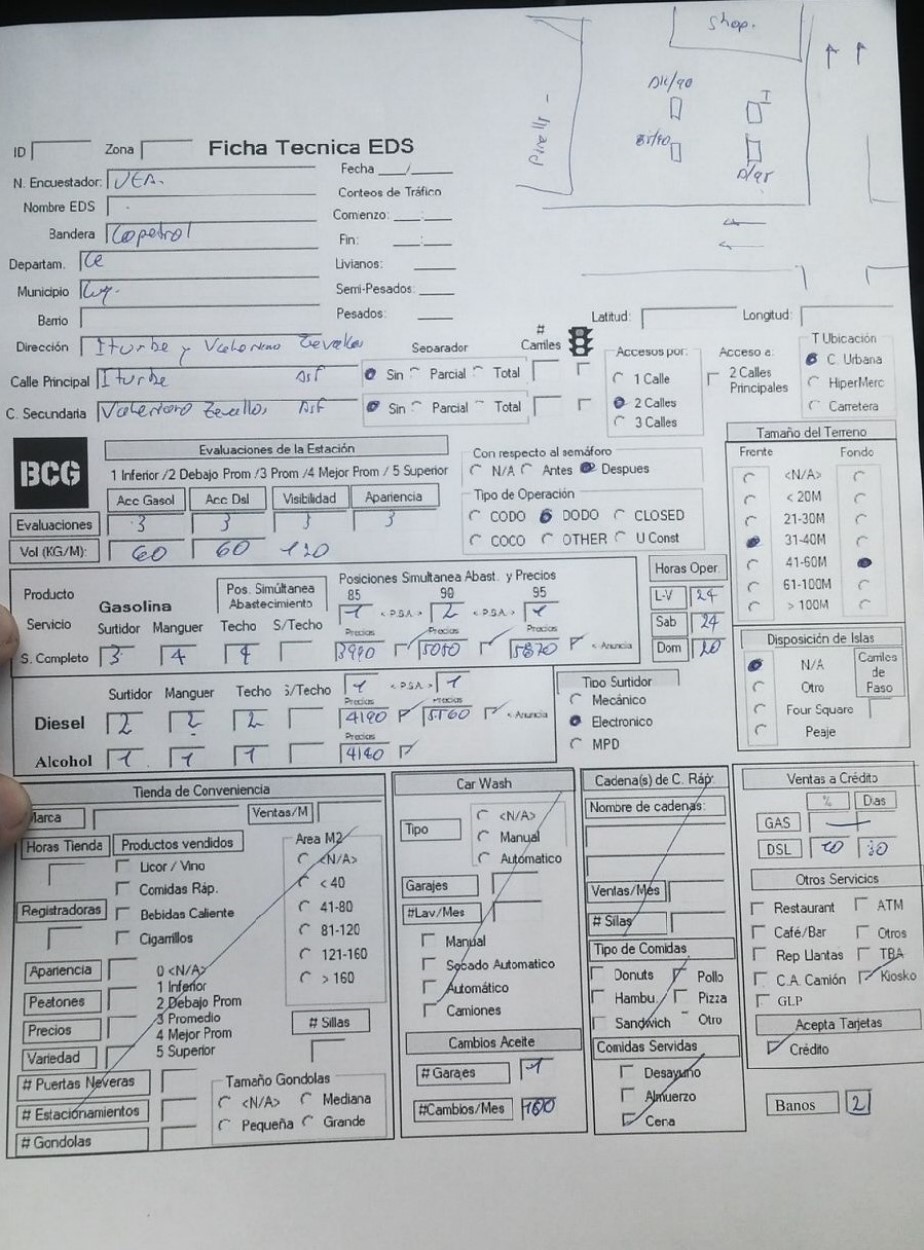 Shop.
ID Zona Ficha Tecnica EDS
Fecha / 
N. Encuestador: VEA.
Conteos de Tráfico
Nombre EDS
Comienzo: __:__
Bandera Copetrol
Fin: __:__
Departam. Ce
Livianos:
Municipio
Semi-Pesados:
Barrio
Pesados:
Latitud: Longitud:
Dirección Iturbe y
Separador # Carriles
Accesos por: Acceso a: T Ubicación
Calle Principal Iturbe Asf Sin Parcial Total
1 Calle 2 Calles Principales C. Urbana
2 Calles HiperMerc
C. Secundaria Asf Sin Parcial Total
3 Calles Carretera
BCG
Evaluaciones de la Estación
1 Inferior /2 Debajo Prom /3 Prom /4 Mejor Prom / 5 Superior
Acc Gasol Acc Dsl Visibilidad Apariencia
Evaluaciones 3 3 3 3
Vol (KG/M): 60 60 120
Con respecto al semáforo
N/A Antes Despues
Tipo de Operación
CODO DODO CLOSED
COCO OTHER U Const
Tamaño del Terreno
Frente Fondo
<N/A>
< 20M
21-30M
31-40M
41-60M
61-100M
> 100M
Producto
Servicio
Gasolina
Pos. Simúltanea Abastecimiento
Posiciones Simultanea Abast. y Precios
85 90 95
1 < P.S.A. > 2 < P.S.A. > 1
Surtidor Manguer Techo S/Techo
Precios Precios Precios
S. Completo 3 4 4 3990 5050 5870 < Anuncia
Horas Oper.
L-V 24
Sab 24
Dom
Disposición de Islas
N/A
Otro
Four Square
Peaje
Carriles de Paso
Surtidor Manguer Techo S/Techo
1 < P.S.A. > 1
Precios Precios
Diesel 2 2 2 4190 5160 < Anuncia
Precios
Alcohol 1 1 1 4180
Tipo Surtidor
Mecánico
Electronico
MPD
Tienda de Conveniencia
Marca Ventas/M
Horas Tienda Productos vendidos
Licor / Vino
Comidas Ráp.
Registradoras Bebidas Caliente
Cigarrillos
Area M2
<N/A>
< 40
41-80
81-120
121-160
> 160
Apariencia
Peatones
Precios
Variedad
0 <N/A>
1 Inferior
2 Debajo Prom
3 Promedio
4 Mejor Prom
5 Superior
# Sillas
# Puertas Neveras
# Estacionamientos
# Gondolas
Tamaño Gondolas
<N/A> Mediana
Pequeña Grande
Car Wash
Tipo
<N/A>
Manual
Automatico
Garajes
#Lav/Mes
Manual
Secado Automatico
Automático
Camiones
Cambios Aceite
# Garajes 1
#Cambios/Mes 100
Cadena(s) de C. Ráp.
Nombre de cadenas:
Ventas/Més
# Sillas
Tipo de Comidas
Donuts Pollo
Hambu. Pizza
Sandwich Otro
Comidas Servidas
Desayuno
Almuerzo
Cena
Ventas a Crédito
% Dias
GAS
DSL 30
Otros Servicios
Restaurant ATM
Café/Bar Otros
Rep Llantas TBA
C.A. Camión Kiosko
GLP
Acepta Tarjetas
Crédito
Banos 2